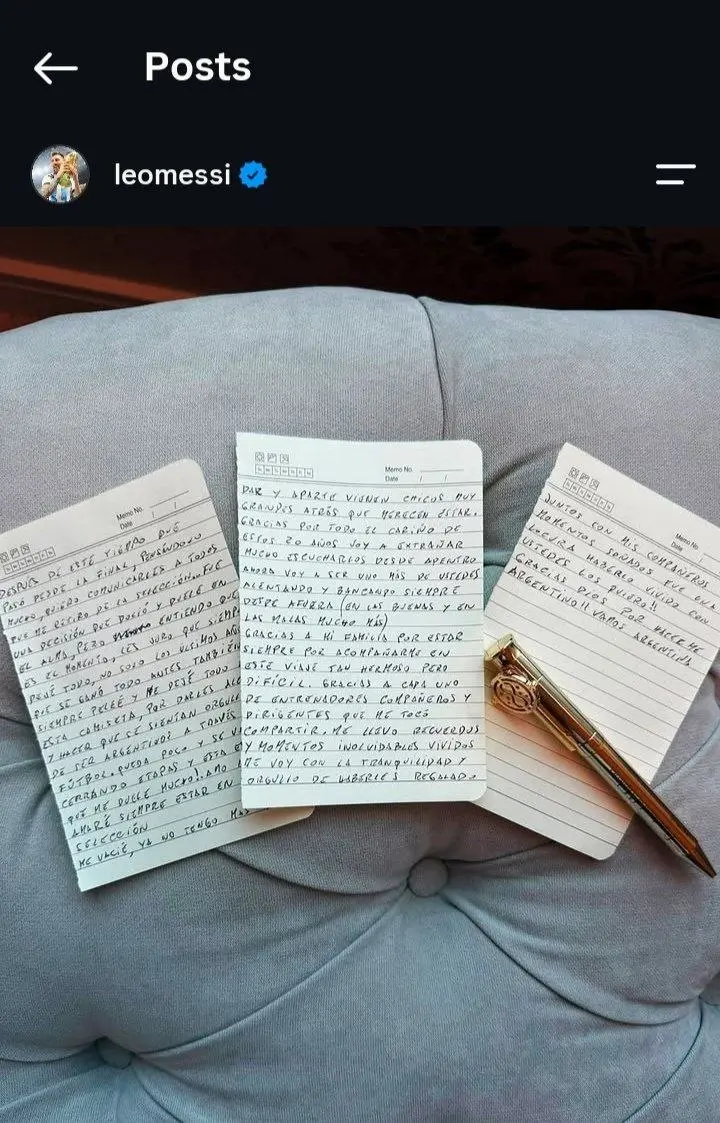 Posts
leomessi
Memo No.
Date / /
DESPUES DE ESTE TIEMPO QUE
PASO DESDE LA FINAL, PENSANDOLO
MUCHO, QUIERO COMUNICARLES A TODOS
QUE ME RETIRO DE LA SELECCION. FUE
UNA DECISIÓN QUE DOLIÓ Y DUELE EN
EL ALMA, PERO ENTIENDO QUE
ES EL MOMENTO. LES JURO QUE SIEMPRE
DEJÉ TODO, NO SOLO LOS ULTIMOS AÑOS
QUE SE GANÓ TODO ANTES TAMBIÉN
SIEMPRE PELEÉ Y ME DEJÉ TODO
ESTA CAMISETA, POR DARLES
Y HACER QUE SE SIENTAN
DE SER ARGENTINOS A TRAVÉS
FÚTBOL. QUEDA POCO Y SE
CERRANDO ETAPAS Y ESTA
QUE ME DUELE MUCHO!. AMO
AMARÉ SIEMPRE ESTAR EN
SELECCIÓN
ME VACIÉ, YA NO TENGO
Memo No.
Date / /
DAR Y APARTE VIENEN CHICOS MUY
GRANDES ATRÁS QUE MERECEN ESTAR.
GRACIAS POR TODO EL CARIÑO DE
ESTOS 20 AÑOS VOY A EXTRAÑAR
MUCHO ESCUCHARLOS DESDE ADENTRO
AHORA VOY A SER UNO MÁS DE USTEDES
ALENTANDO Y BANCANDO SIEMPRE
DESDE AFUERA (EN LAS BUENAS Y EN
LAS MALAS MUCHO MÁS)
GRACIAS A MI FAMILIA POR ESTAR
SIEMPRE POR ACOMPAÑARME EN
ESTE VIAJE TAN HERMOSO PERO
DIFÍCIL. GRACIAS A CADA UNO
DE ENTRENADORES COMPAÑEROS Y
DIRIGENTES QUE ME TOCÓ
COMPARTIR. ME LLEVO RECUERDOS
Y MOMENTOS INOLVIDABLES VIVIDOS
ME VOY CON LA TRANQUILIDAD Y
ORGULLO DE HABERLES REGALADO
Memo No.
Date
JUNTOS CON MIS COMPAÑEROS
MOMENTOS SOÑADOS FUE UNA
LOCURA HABERLO VIVIDO CON
USTEDES LOS QUIERO!!
GRACIAS DIOS POR HACERME
ARGENTINO!! VAMOS ARGENTINA